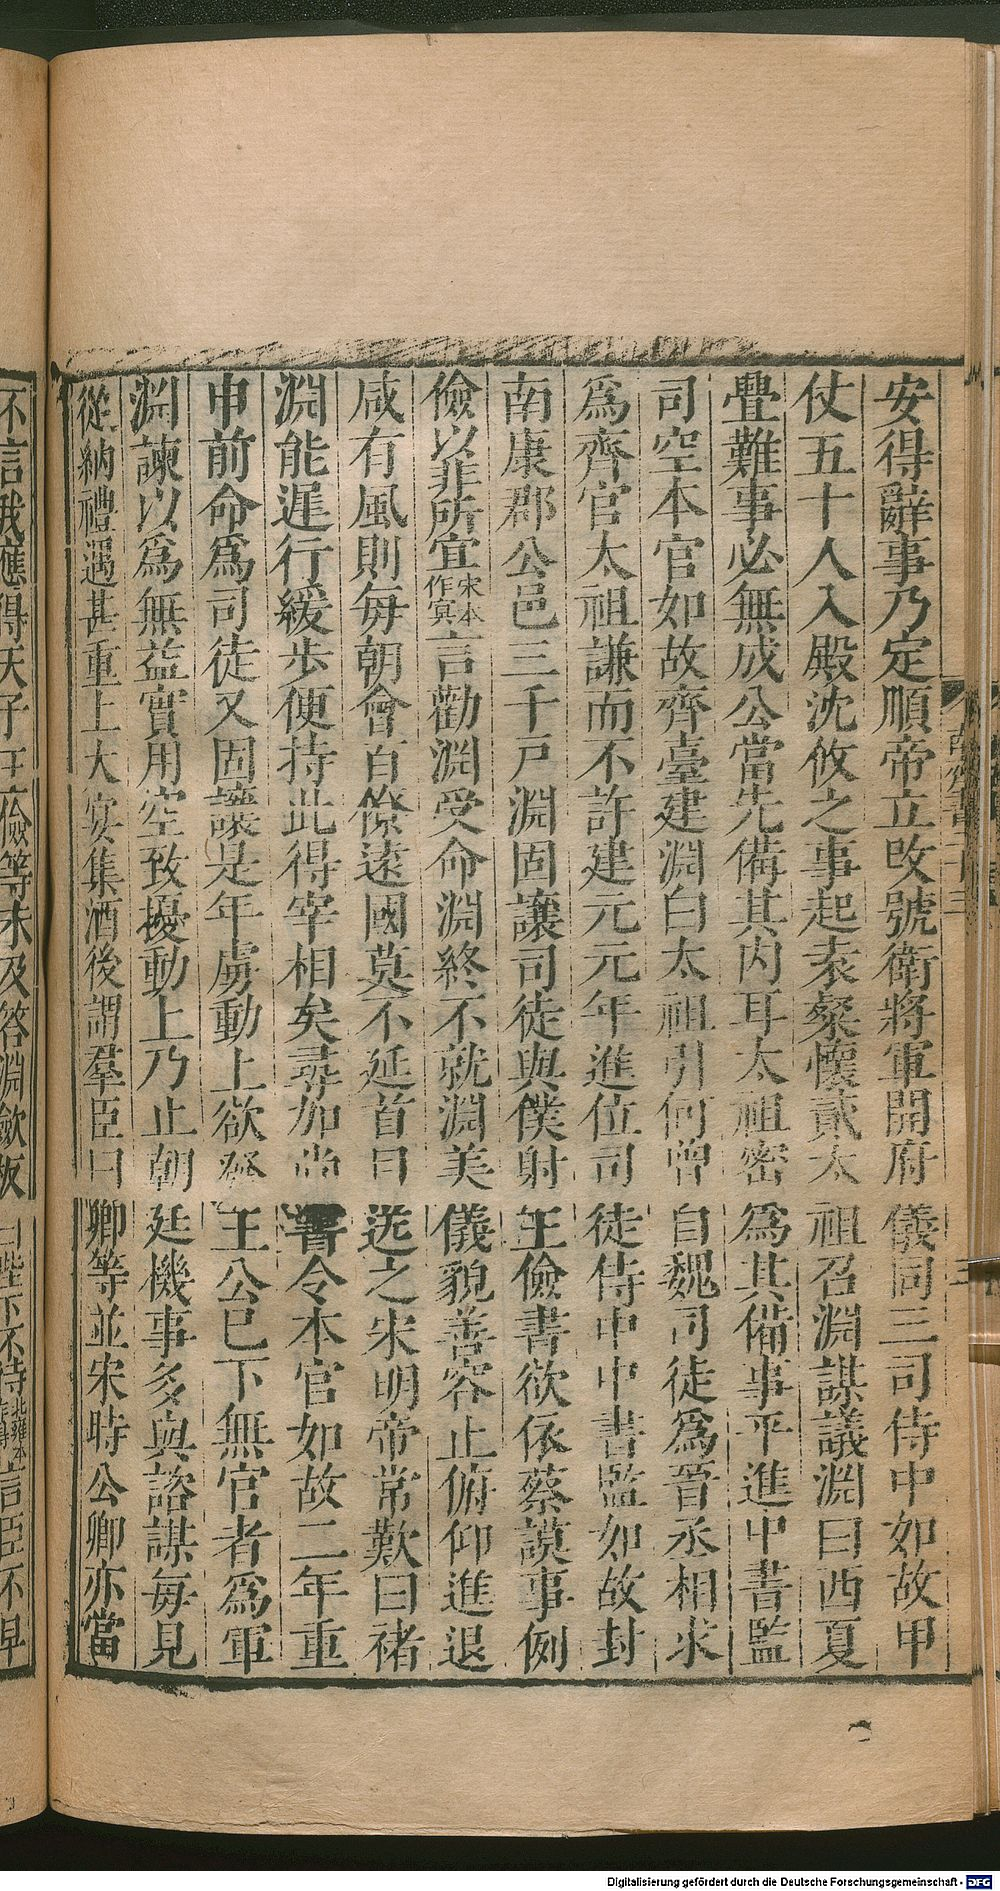 安得辭事乃定順帝立改號衛將軍開府儀同三司侍中如故甲
仗五十人入殿沈攸之事起袁粲懷貳太祖召淵謀議淵曰西夏
釁難事必無成公當先備其内耳太祖密爲其備事平進中書監
司空本官如故齊臺建淵白太祖引何曾自魏司徒爲晉丞相求
爲齊官太祖謙而不許建元元年進位司徒侍中中書監如故封
南康郡公邑三千戸淵固讓司徒與僕射王儉書欲依蔡謨事例
儉以非所宜宋本作㝠言勸淵受命淵終不就淵美儀貌善容止俯仰進退
咸有風則每朝會百僚遠國莫不延首目送之宋明帝常歎曰褚
淵能遲行緩步便持此得宰相矣尋加尚書令本官如故二年重
申前命爲司徒又固讓是年虜動上欲發王公已下無官者爲軍
淵諫以爲無益實用空致擾動上乃止朝廷機事多與諮謀每見
從納禮遇甚重上大宴集酒後謂羣臣曰卿等並宋時公卿亦當
不言我應得天子王儉等未及答淵斂板曰陛下不得北雍本言臣不早
Digitalisierung gefördert durch die Deutsche Forschungsgemeinschaft - DFG